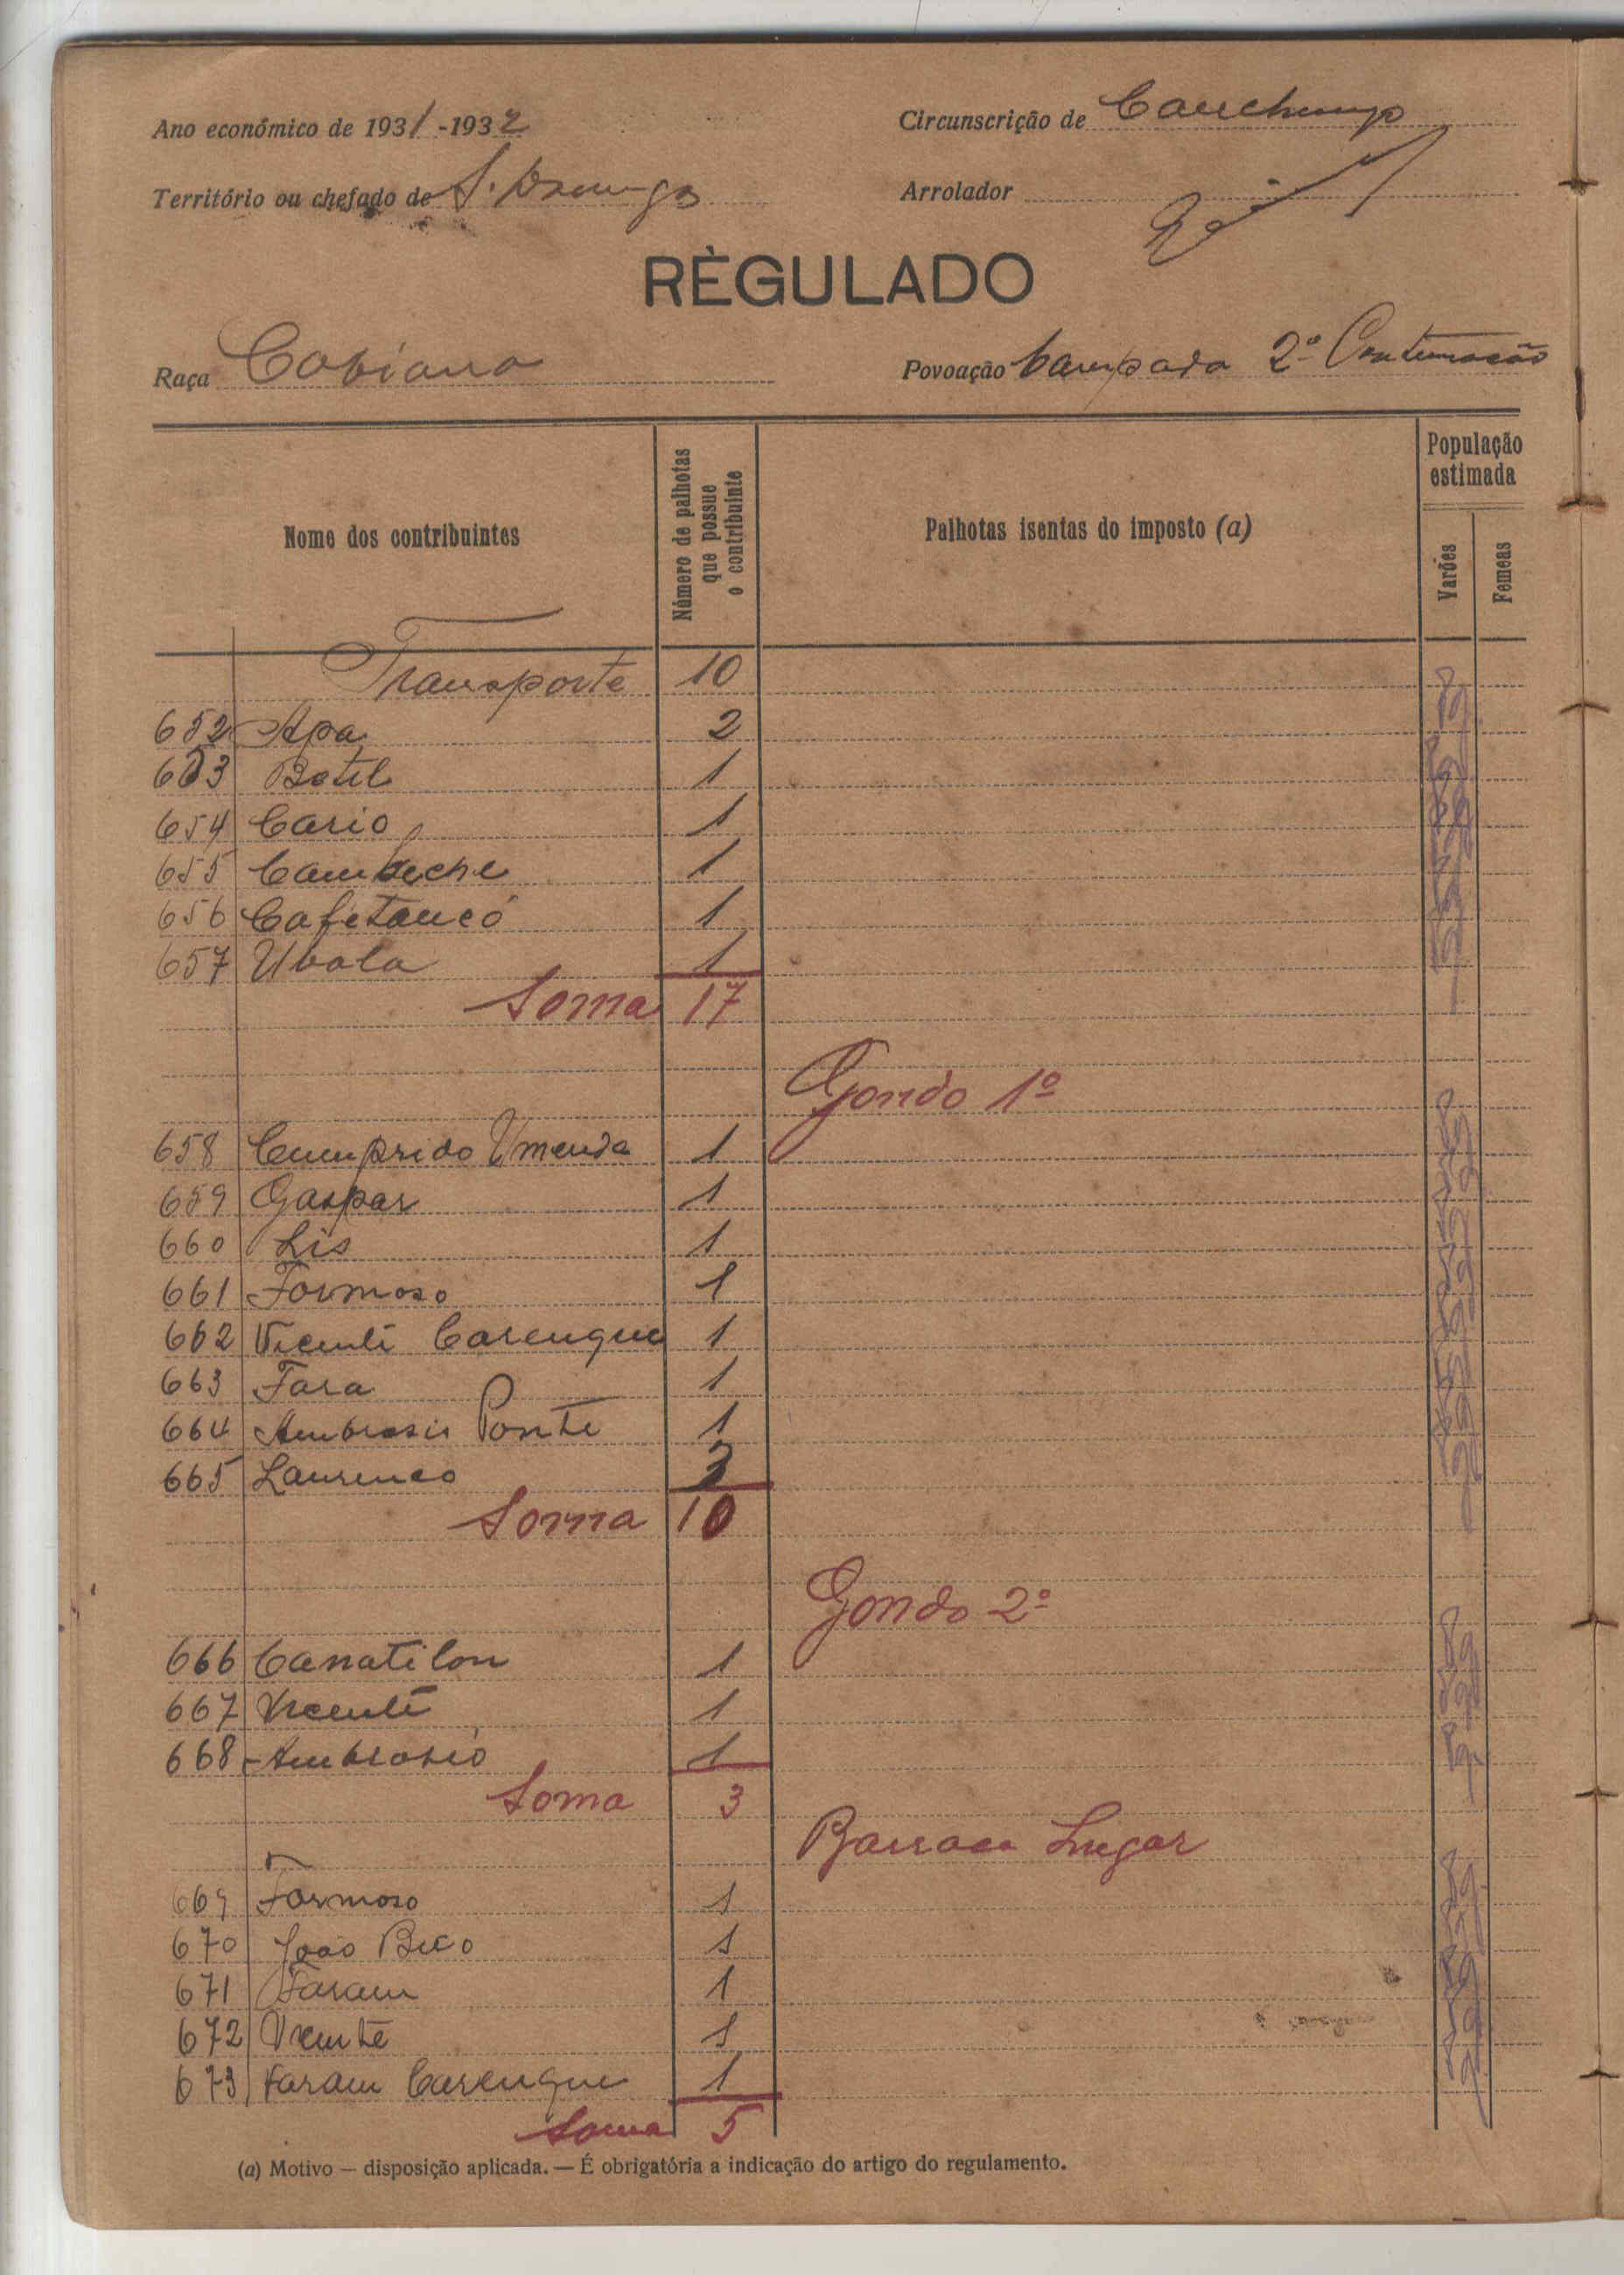 Ano económico de 1931-1932
Circunscrição de Canchungo
Território ou chefado de S. Domingos
Arrolador
RÈGULADO
Raça Cobiana
Povoação 2º Continuação
Nome dos contribuintes
Número de palhotas que possue o contribuinte
Palhotas isentas do imposto (a)
População estimada
Varões
Femeas
Transporte 10
652 Apa 2
653 Botil 1
654 Cario 1
655 1
656 Cafetancó 1
657 Ubola 1
Soma 17
Gondo 1º
658 Cumprido Umenda 1
659 Gaspar 1
660 Lis 1
661 Formoso 1
662 Vicenti Carengue 1
663 Fara 1
664 Ambrosio Ponte 1
665 Laurenco 3
Soma 10
Gondo 2º
666 Canatilon 1
667 Vicenti 1
668 Ambrosio 1
Soma 3
Barraca Lugar
669 Formoso 1
670 João Bico 1
671 Faram 1
672 Vicente 1
673 Faram Carengue 1
Soma 5
(a) Motivo — disposição aplicada. — É obrigatória a indicação do artigo do regulamento.